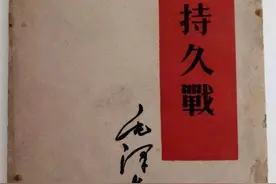 持久戰
毛澤